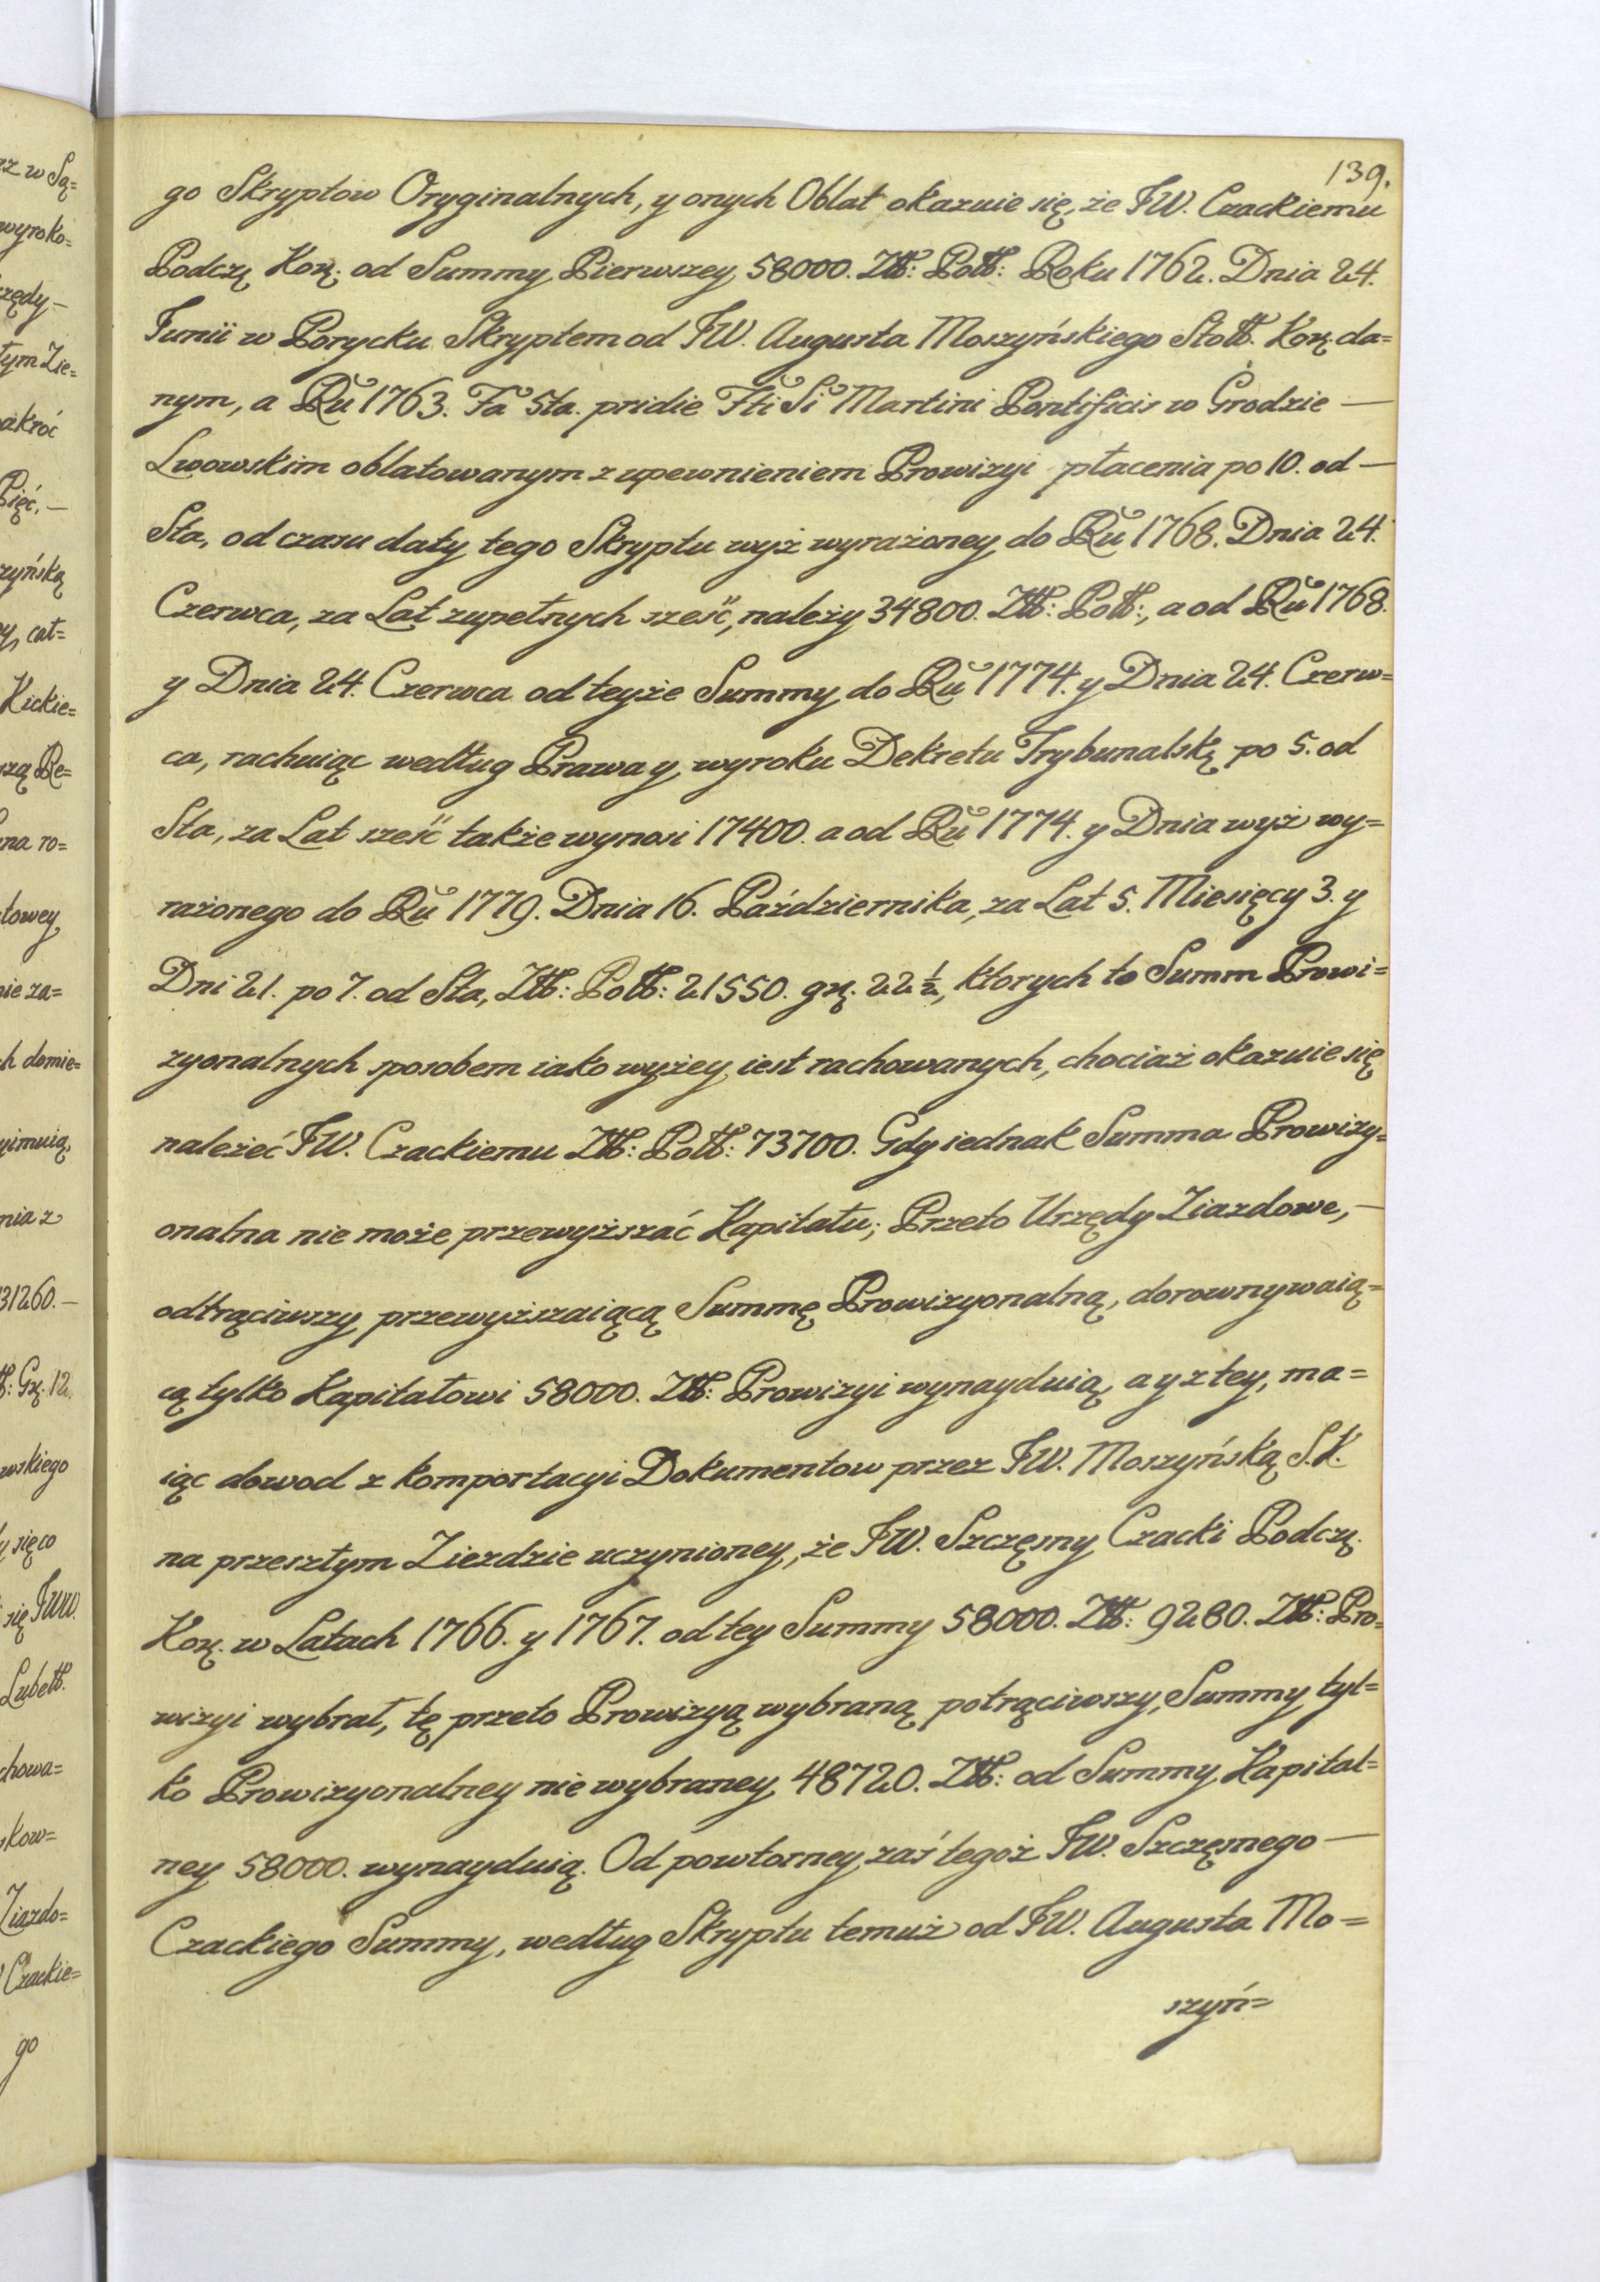 139.
go Skryptow Oryginalnych, y onych Oblat okazuie się, że JW. Czackiemu
Podczą Korą: od Summy Pierwszey 58000. Złł: Poll: Roku 1762. Dnia 24.
Junii w Porycku Skryptem od JW. Augusta Moszyńskiego Stoll. Korą. da=
nym, a Ru 1763. Fa 5ta. pridie Fti Si Martini Pontificis w Grodzie —
Lwowskim oblatowanym z upewnieniem Prowizyi płacenia po 10. od —
Sta, od czasu daty tego Skryptu wyż wyrażoney do Ru 1768. Dnia 24.
Czerwca, za Lat zupełnych sześć, należy 34800. Złł: Poll:, a od Ru 1768.
y Dnia 24. Czerwca od teyże Summy do Ru 1774. y Dnia 24. Czerw=
ca, rachuiąc według Prawa y wyroku Dekretu Trybunalską po 5. od
Sta, za Lat sześć także wynosi 17400. a od Ru 1774. y Dnia wyż wy=
rażonego do Ru 1779. Dnia 16. Października, za Lat 5. Miesięcy 3. y
Dni 21. po 7. od Sta, Złł: Poll: 21550. grą. 22 1/2, ktorych to Summ Prowi=
zyonalnych sposobem iako wyżey iest rachowanych, chociaż okazuie się
należeć JW. Czackiemu Złł: Poll: 73700. Gdy iednak Summa Prowizy=
onalna nie może przewyższać Kapitału; Przeto Urzędy Ziazdowe, —
odtrąciwszy przewyższaiącą Summę Prowizyonalną, dorownywaią=
cą tylko Kapitałowi 58000. Złł: Prowizyi wynayduią, a y z tey, ma=
iąc dowod z komportacyi Dokumentow przez JW. Moszyńską S.K.
na przeszłym Zieździe uczynioney, że JW. Szczęsny Czacki Podczą.
Korą. w Latach 1766. y 1767. od tey Summy 58000. Złł: 9280. Złł: Pro=
wizyi wybrał, tę przeto Prowizyą wybraną potrąciwszy, Summy tyl=
ko Prowizyonalney nie wybraney 48720. Złł: od Summy Kapital=
ney 58000. wynayduią. Od powtorney zaś tegoż JW. Szczęsnego —
Czackiego Summy, według Skryptu temuż od JW. Augusta Mo=
szyń=